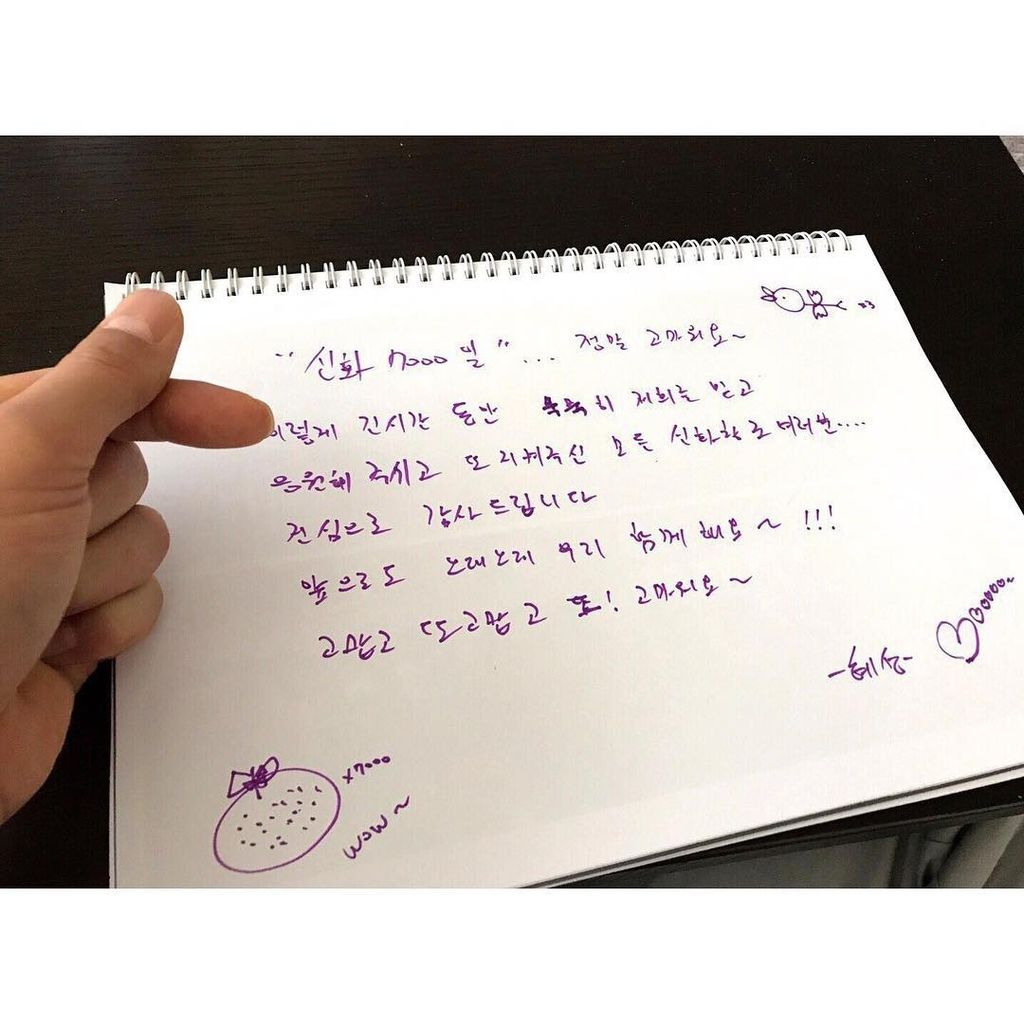 "신화 7000일"... 정말 고마워요~
이렇게 긴시간 동안 묵묵히 저희를 믿고
응원해 주시고 또 지켜주신 모든 신화창조 여러분....
진심으로 감사드립니다
앞으로도 노래노래 우리 함께 해요~ !!!
고맙고 또 고맙고 또! 고마워요~
-혜성-
x7000
wow~